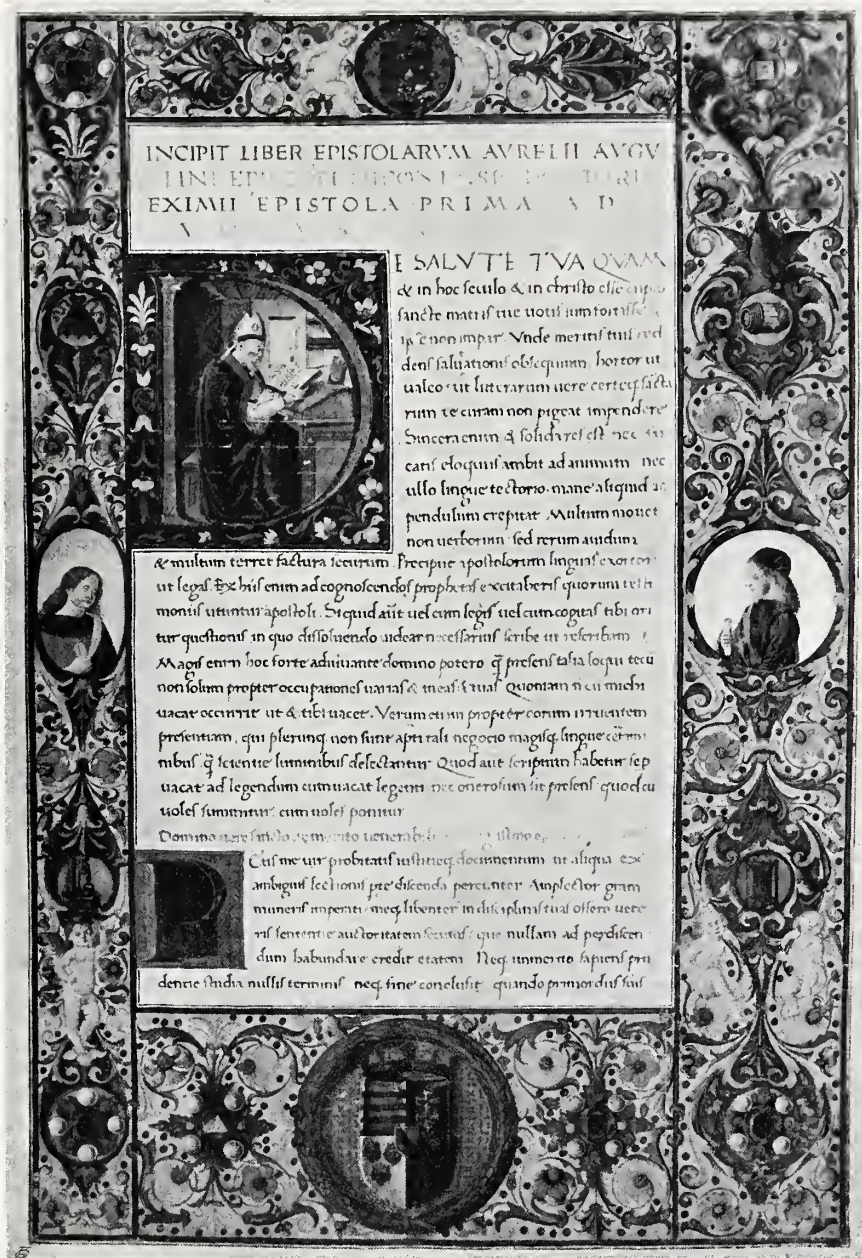 INCIPIT LIBER EPISTOLARVM AVRELII AVGV
EXIMII EPISTOLA PRIMA A D
DE SALVTE TVA QVAM
& in hoc seculo & in christo esse
sancte matris tue uotis sum fortisse
non impar. Vnde meritis tuis red
dens salutationis obsequium hortor ut
ualeo ut litterarum uere certeq; sancta
rum te curam non pigeat impendere
Sincera enim & solida res est nec
catis eloquiis ambit ad animum nec
ullo lingue tectorio mane aliquid
pendulum crepitat Multum mouet
non uerborum sed rerum auidum
& multum terret factura securum. Precipue apostolorum linguis exortor
ut legas. Ex hiis enim ad cognoscendos prophetas excitaberis quorum testi
moniis utuntur apostoli. Siquid aut uel cum legis uel cum cogitas tibi ori
tur questionis in quo dissoluendo uidear necessarius scribe ut rescribam
Magis enim hoc forte adiuuante domino potero q̃ presens talia loqui tecũ
non solum propter occupationes uarias & meas & tuas Quoniam n cũ michi
uacat occurrit ut & tibi uacet. Verum enim propter eorum irruentem
presentiam, qui plerunq; non sunt apti tali negocio magisq; lingue certami
nibus q̃ scientie luminibus delectantur Quod aut scriptum habetur sep
uacat ad legendum cum uacat legenti nec onerosum fit presens quod cũ
uoles sumitur cum uoles ponitur
Domino
Cuis me uir probitatis iustitieq; documentum ut aliqua ex
ambiguis lectionis pte discenda percunter Amplector gram
muneris imperati meq; libenter in disciplinis tuas offero uete
ris sententie auctoritatem secutus que nullam ad perdiscen
dum habundare credit etatem Neq; immerito sapiens pru
dentie studia nullis terminis neq; fine conclusit quando primordiis suis